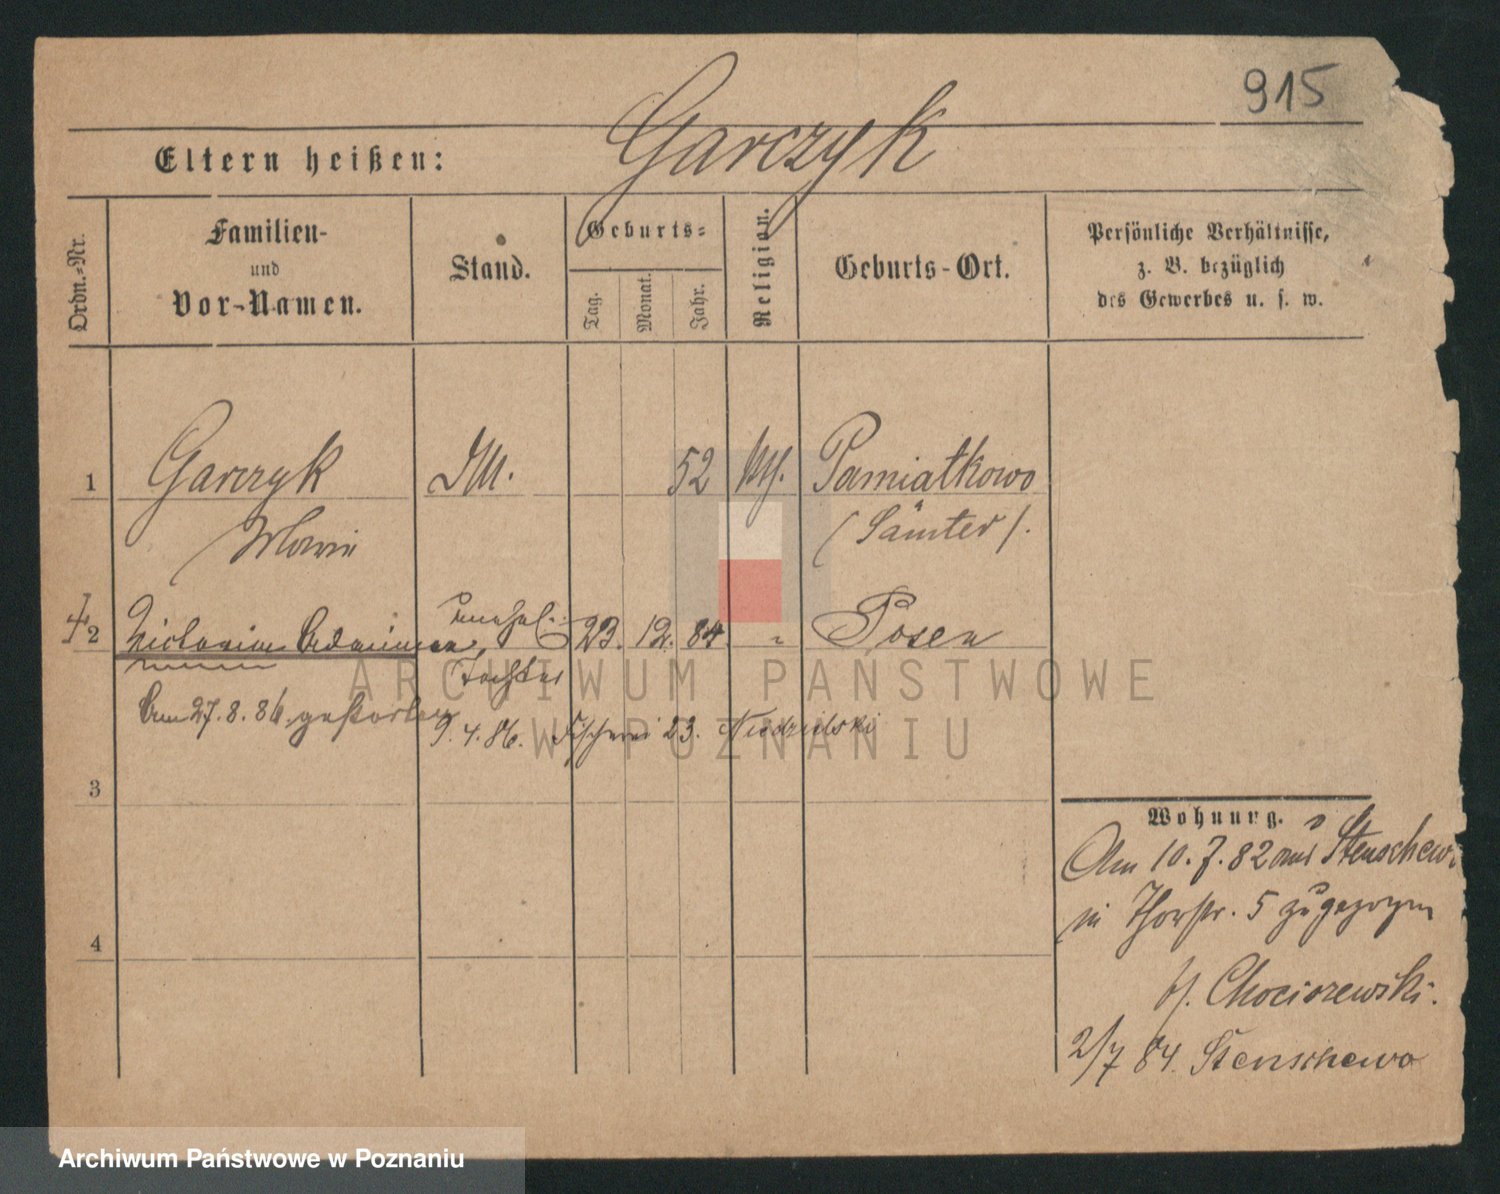 915
Garczyk
Eltern heißen:
Ordn.-Nr.
Familien-
und
Vor-Namen.
Stand.
Geburts-
Tag.
Monat.
Jahr.
Religion.
Geburts-Ort.
Persönliche Verhältnisse,
z. B. bezüglich
des Gewerbes u. s. w.
1 Garczyk 52 kth. Pamiatkowo
Marie (Samter).
2 unehel. 23. 12. 84. " Posen
Tochter
Am 27.8.86. gestorben
9. 4. 86. Fischerei 23.
3
4
Wohnung.
Am 10.7.82 aus Stenschewo
in Thorstr. 5 zugezogen
b/. Chociszewski.
2/7 84. Stenschewo
ARCHIWUM PAŃSTWOWE
W POZNANIU
Archiwum Państwowe w Poznaniu